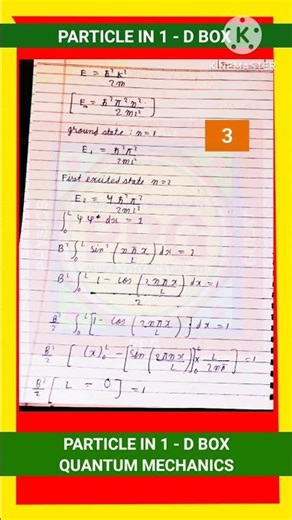 PARTICLE IN 1 - D BOX
KINEMASTER
3
E = ħ²k²/2m
[Eₙ = ħ²π²n²/2ml²]
ground state : n=1
E₁ = ħ²π²/2ml²
First excited state n=2
E₂ = 4ħ²π²/2ml²
∫₀ᴸ ψ ψ* dx = 1
B² ∫₀ᴸ sin² (nπx/L) dx = 1
B² ∫₀ᴸ 1 - cos (2nπx/L) dx = 1
2
B²/2 ∫₀ᴸ [1 - cos (2nπx/L)] dx = 1
B²/2 [(x)₀ᴸ - [sin (2πnx/L)]₀ᴸ × L/2nπ] = 1
B²/2 [L - 0] = 1
PARTICLE IN 1 - D BOX
QUANTUM MECHANICS